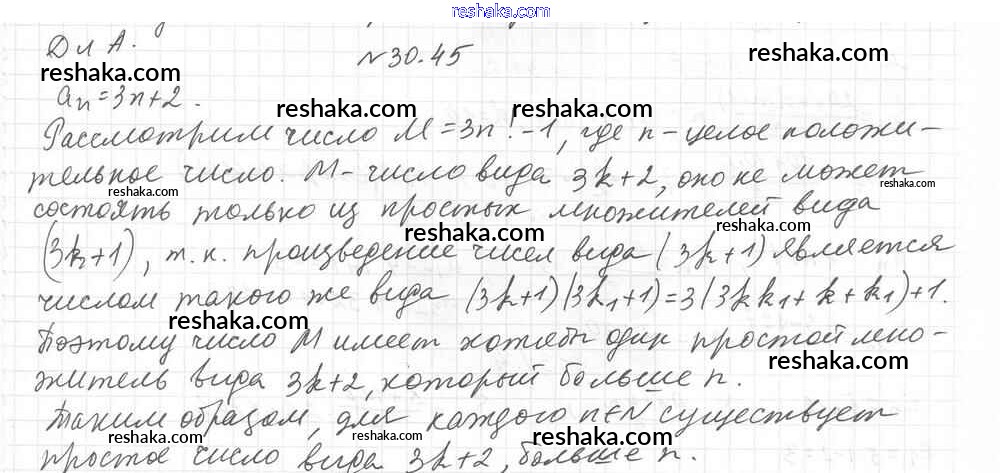 reshaka.com
Дл А.
№30.45
reshaka.com
reshaka.com
aₙ=3n+2.
reshaka.com
reshaka.com
Рассмотрим число M=3n!-1, где n-целое положи-
тельное число. M-число вида 3k+2, оно не может
reshaka.com
reshaka.com
состоять только из простых множителей вида
reshaka.com
(3k+1), т.к. произведение чисел вида (3k+1) является
числом такого же вида (3k+1)(3k₁+1)=3(3kk₁+k+k₁)+1.
reshaka.com
reshaka.com
Поэтому число M имеет хотябы один простой мно-
reshaka.com
житель вида 3k+2, который больше n.
Таким образом, для каждого n∈N существует
reshaka.com
reshaka.com
reshaka.com
простое число вида 3k+2, больше n.